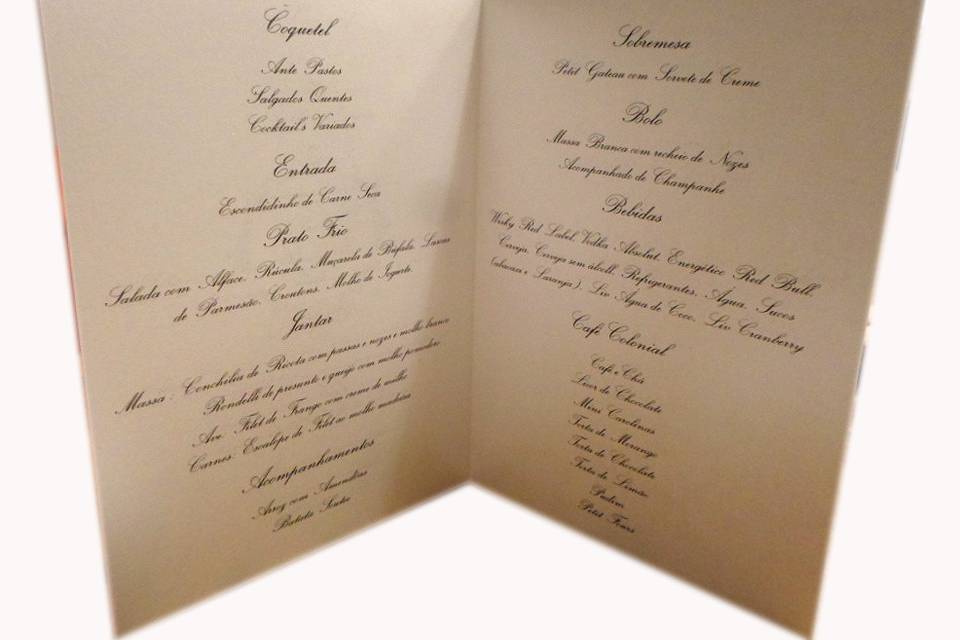 Coquetel
Ante Pastos
Salgados Quentes
Cocktail's Variados
Entrada
Escondidinho de Carne Seca
Prato Frio
Salada com Alface, Rúcula, Muçarela de Búfala, Lascas
de Parmesão, Croutons, Molho de Iogurte.
Jantar
Massa: Conchilia de Ricota com passas e nozes e molho branco
Rondelli de presunto e queijo com molho pomodoro
Ave: Filet de Frango com creme de milho
Carnes: Escalope de Filet ao molho madeira
Acompanhamentos
Arroz com Amendôas
Batata Soutée
Sobremesa
Petit Gateau com Sorvete de Creme
Bolo
Massa Branca com recheio de Nozes
Acompanhado de Champanhe
Bebidas
Wisky Red Label, Vodka Absolut, Energético Red Bull,
Cerveja, Cerveja sem álcool, Refrigerantes, Água, Sucos
e Laranja), Liv Água de Coco, Liv Cranberry
Café Colonial
Café e Chá
Licor de Chocolate
Mini Carolinas
Torta de Morango
Torta de Chocolate
Torta de Limão
Pudim
Petit Fours